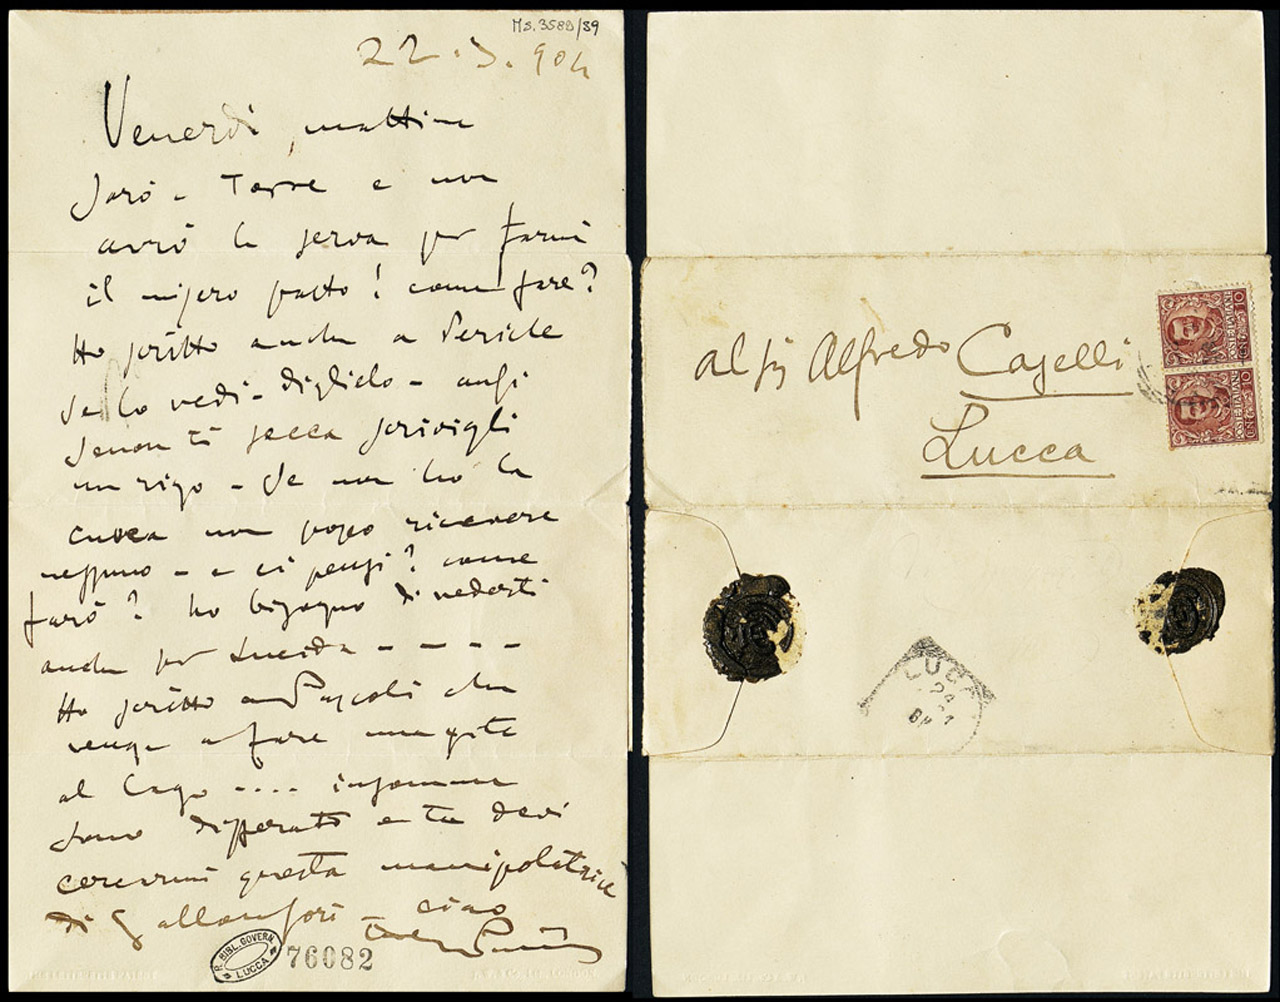 Ms. 3580/39
22.3.904
Venerdì mattina
sarò - Torre e non
avrò la serva per farmi
il misero pasto! come fare?
Ho scritto anche a Pericle
se lo vedi - diglielo - anzi
se non ti secca scrivigli
un rigo - Se non ho la
cuoca non posso ricevere
nessuno - e ci pensi? come
farò? ho bisogno di vederti
anche per Lucida - - - -
Ho scritto a Pascoli che
venga a fare una gita
al Lago .... insomma
sono disperato e tu devi
cercarmi questa manipolatrice
di - ciao
R. BIBL. GOVERN.
LUCCA
76082
al Sig Alfredo Caselli
Lucca
POSTE ITALIANE
10
POSTE ITALIANE
10
LUCCA
24